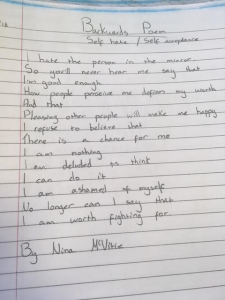 Backwards Poem
Self hate / Self acceptance
I hate the person in the mirror
So you'll never hear me say that
I'm good enough
How people perceive me defines my worth
And that
Pleasing other people will make me happy
I refuse to believe that
There is a chance for me
I am nothing
I am deluded to think
I can do it
I am ashamed of myself
No longer can I say that
I am worth fighting for.
By Nina